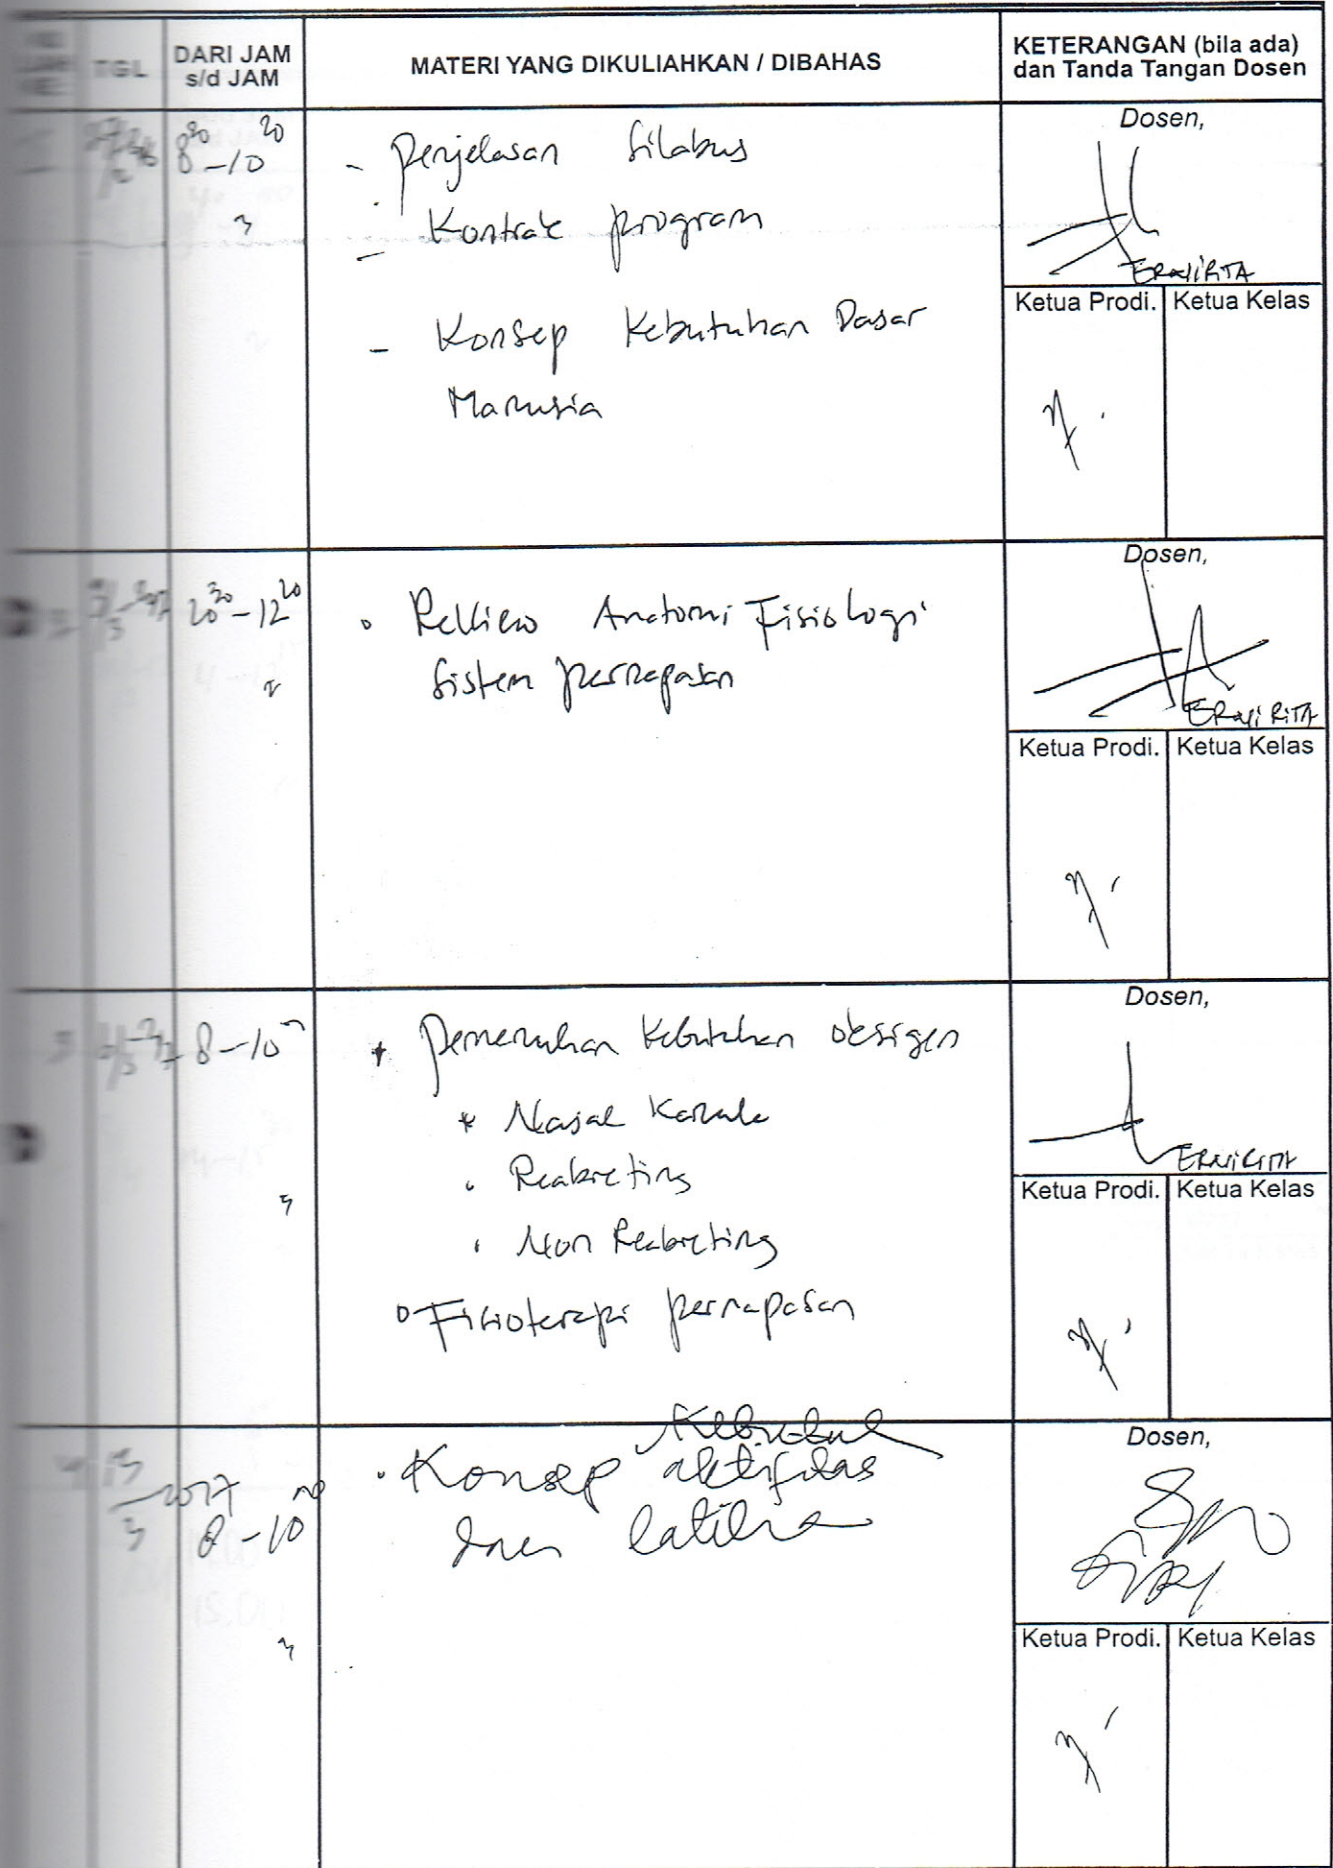 TGL
DARI JAM
s/d JAM
MATERI YANG DIKULIAHKAN / DIBAHAS
KETERANGAN (bila ada)
dan Tanda Tangan Dosen
8 20 - 10 20
3
- Penjelasan Silabus
- Kontrak program
- Konsep Kebutuhan Dasar
Manusia
Dosen,
ERNIRITA
Ketua Prodi. Ketua Kelas
- 12 20
2
Review Anatomi Fisiologi
Sistem pernapasan
Dosen,
ERNI RITA
Ketua Prodi. Ketua Kelas
3
8 - 10
Pemenuhan Kebutuhan oksigen
* Nasal Kanule
. Reabreting
. Non Reabreting
Fisioterapi pernapasan
Dosen,
ERNIRITA
Ketua Prodi. Ketua Kelas
2017
3
8 - 10
. Konsep aktifitas
dan latihan
3
Dosen,
Ketua Prodi. Ketua Kelas